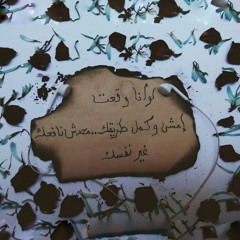 لو أنا وقعت
إمشى وكمل طريقك..محدش نافعك
غير نفسك